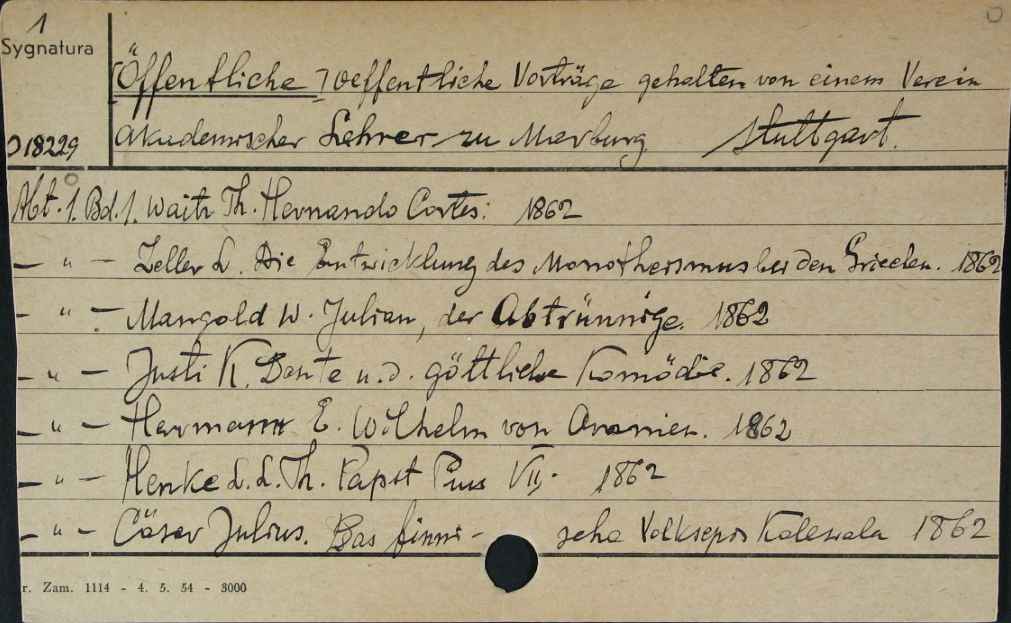 1
Sygnatura
[Öffentliche] Oeffentliche Vorträge gehalten von einem Verein
D18229 akademischer Lehrer zu Marburg Stuttgart.
Abt. 1. Bd. 1. Waitz Th. Hernando Cortes. 1862
— " — Zeller E. Die Entwicklung des Monotheismus bei den Griechen. 1862
— " — Mangold W. Julian, der Abtrünnige. 1862
— " — Justi K. Dante u. d. göttliche Komödie. 1862
— " — Herrmann E. Wilhelm von Oranien. 1862
— " — Henke E. L. Th. Papst Pius VII. 1862
— " — Cäsar Julius. Das finni- sche Volksepos Kalewala 1862
r. Zam. 1114 - 4. 5. 54 - 3000